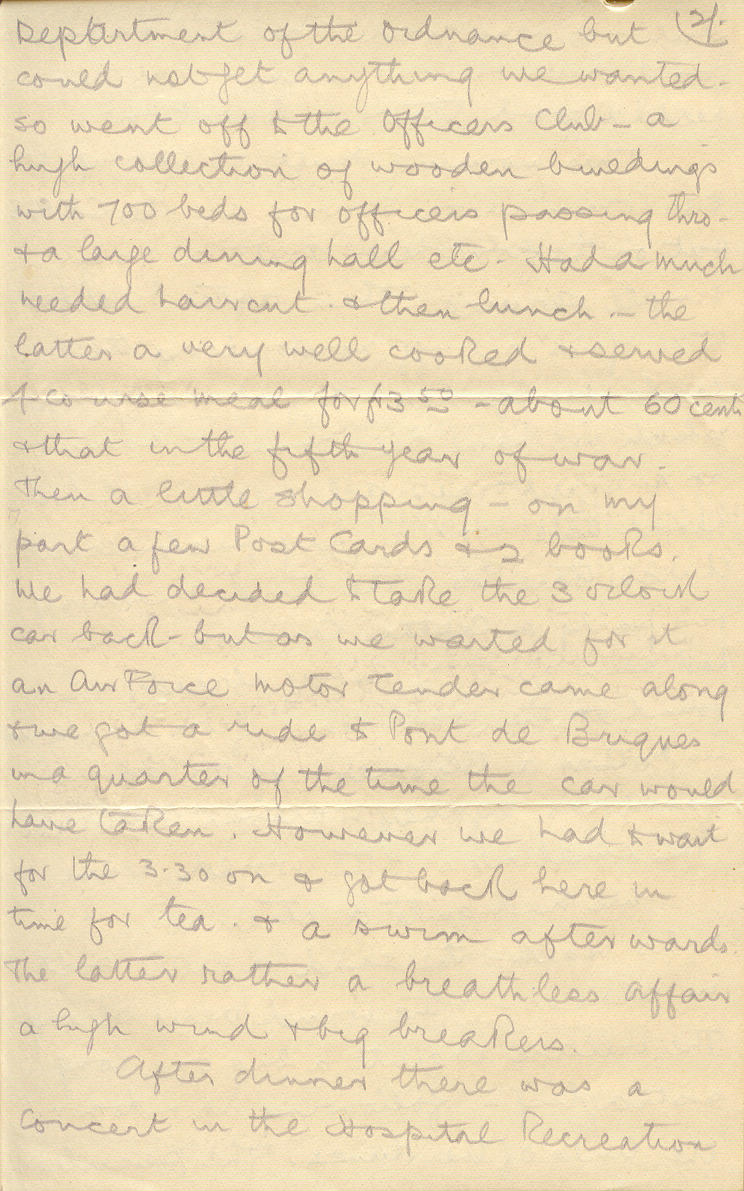 2/.
Department of the Ordnance but
could not get anything we wanted.
so went off to the Officers Club - a
high collection of wooden buildings
with 700 beds for officers passing thro-
+ a large dinning hall etc. Had a much
needed haircut. & then lunch. - the
latter a very well cooked + served
4 course meal for fr 3 50 - about 60 cents
+ that in the fifth year of war.
Then a little shopping - on my
part a few Post Cards + 2 books.
We had decided to take the 3 oclock
car back - but as we waited for it
an Air Force motor tender came along
+ we got a ride to Pont de Briques
in a quarter of the time the car would
have taken. However we had to wait
for the 3.30 on & got back here in
time for tea. & a swim afterwards.
The latter rather a breathless affair
a high wind + big breakers.
After dinner there was a
Concert in the Hospital Recreation